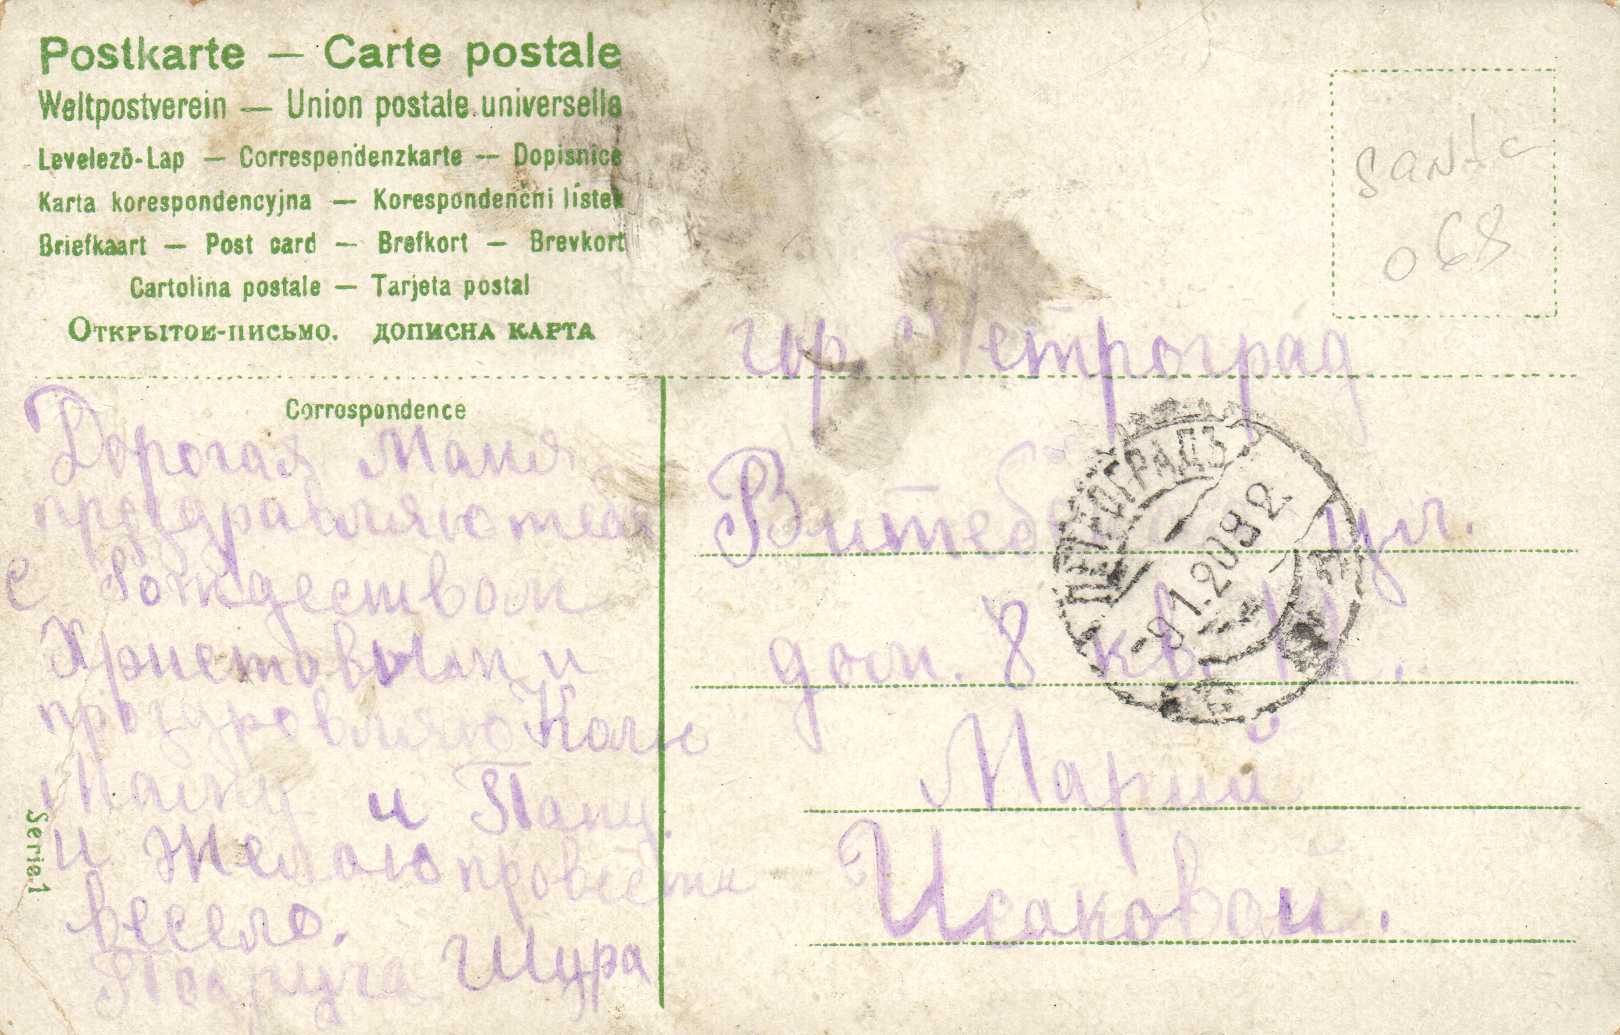 Postkarte — Carte postale
Weltpostverein — Union postale universelle
Levelező-Lap — Correspendenzkarte — Dopisnice
Karta korespondencyjna — Korespondenčni lístek
Briefkaart — Post card — Brefkort — Brevkort
Cartolina postale — Tarjeta postal
Открытое-письмо. дописна карта
Correspondence
Дорогая Маня
проздравляю тебя
с Рождеством
Христовым и
проздровляю Колю
Маму и Папу.
и Желаю провести
весело.
Подруга Шура
Serie 1
santa
068
гор. Петроград
Витебская ул.
дом. 8 кв.
Марии
Исаковой.
ПЕТРОГРАДЪ
-9 1. 20 9 2